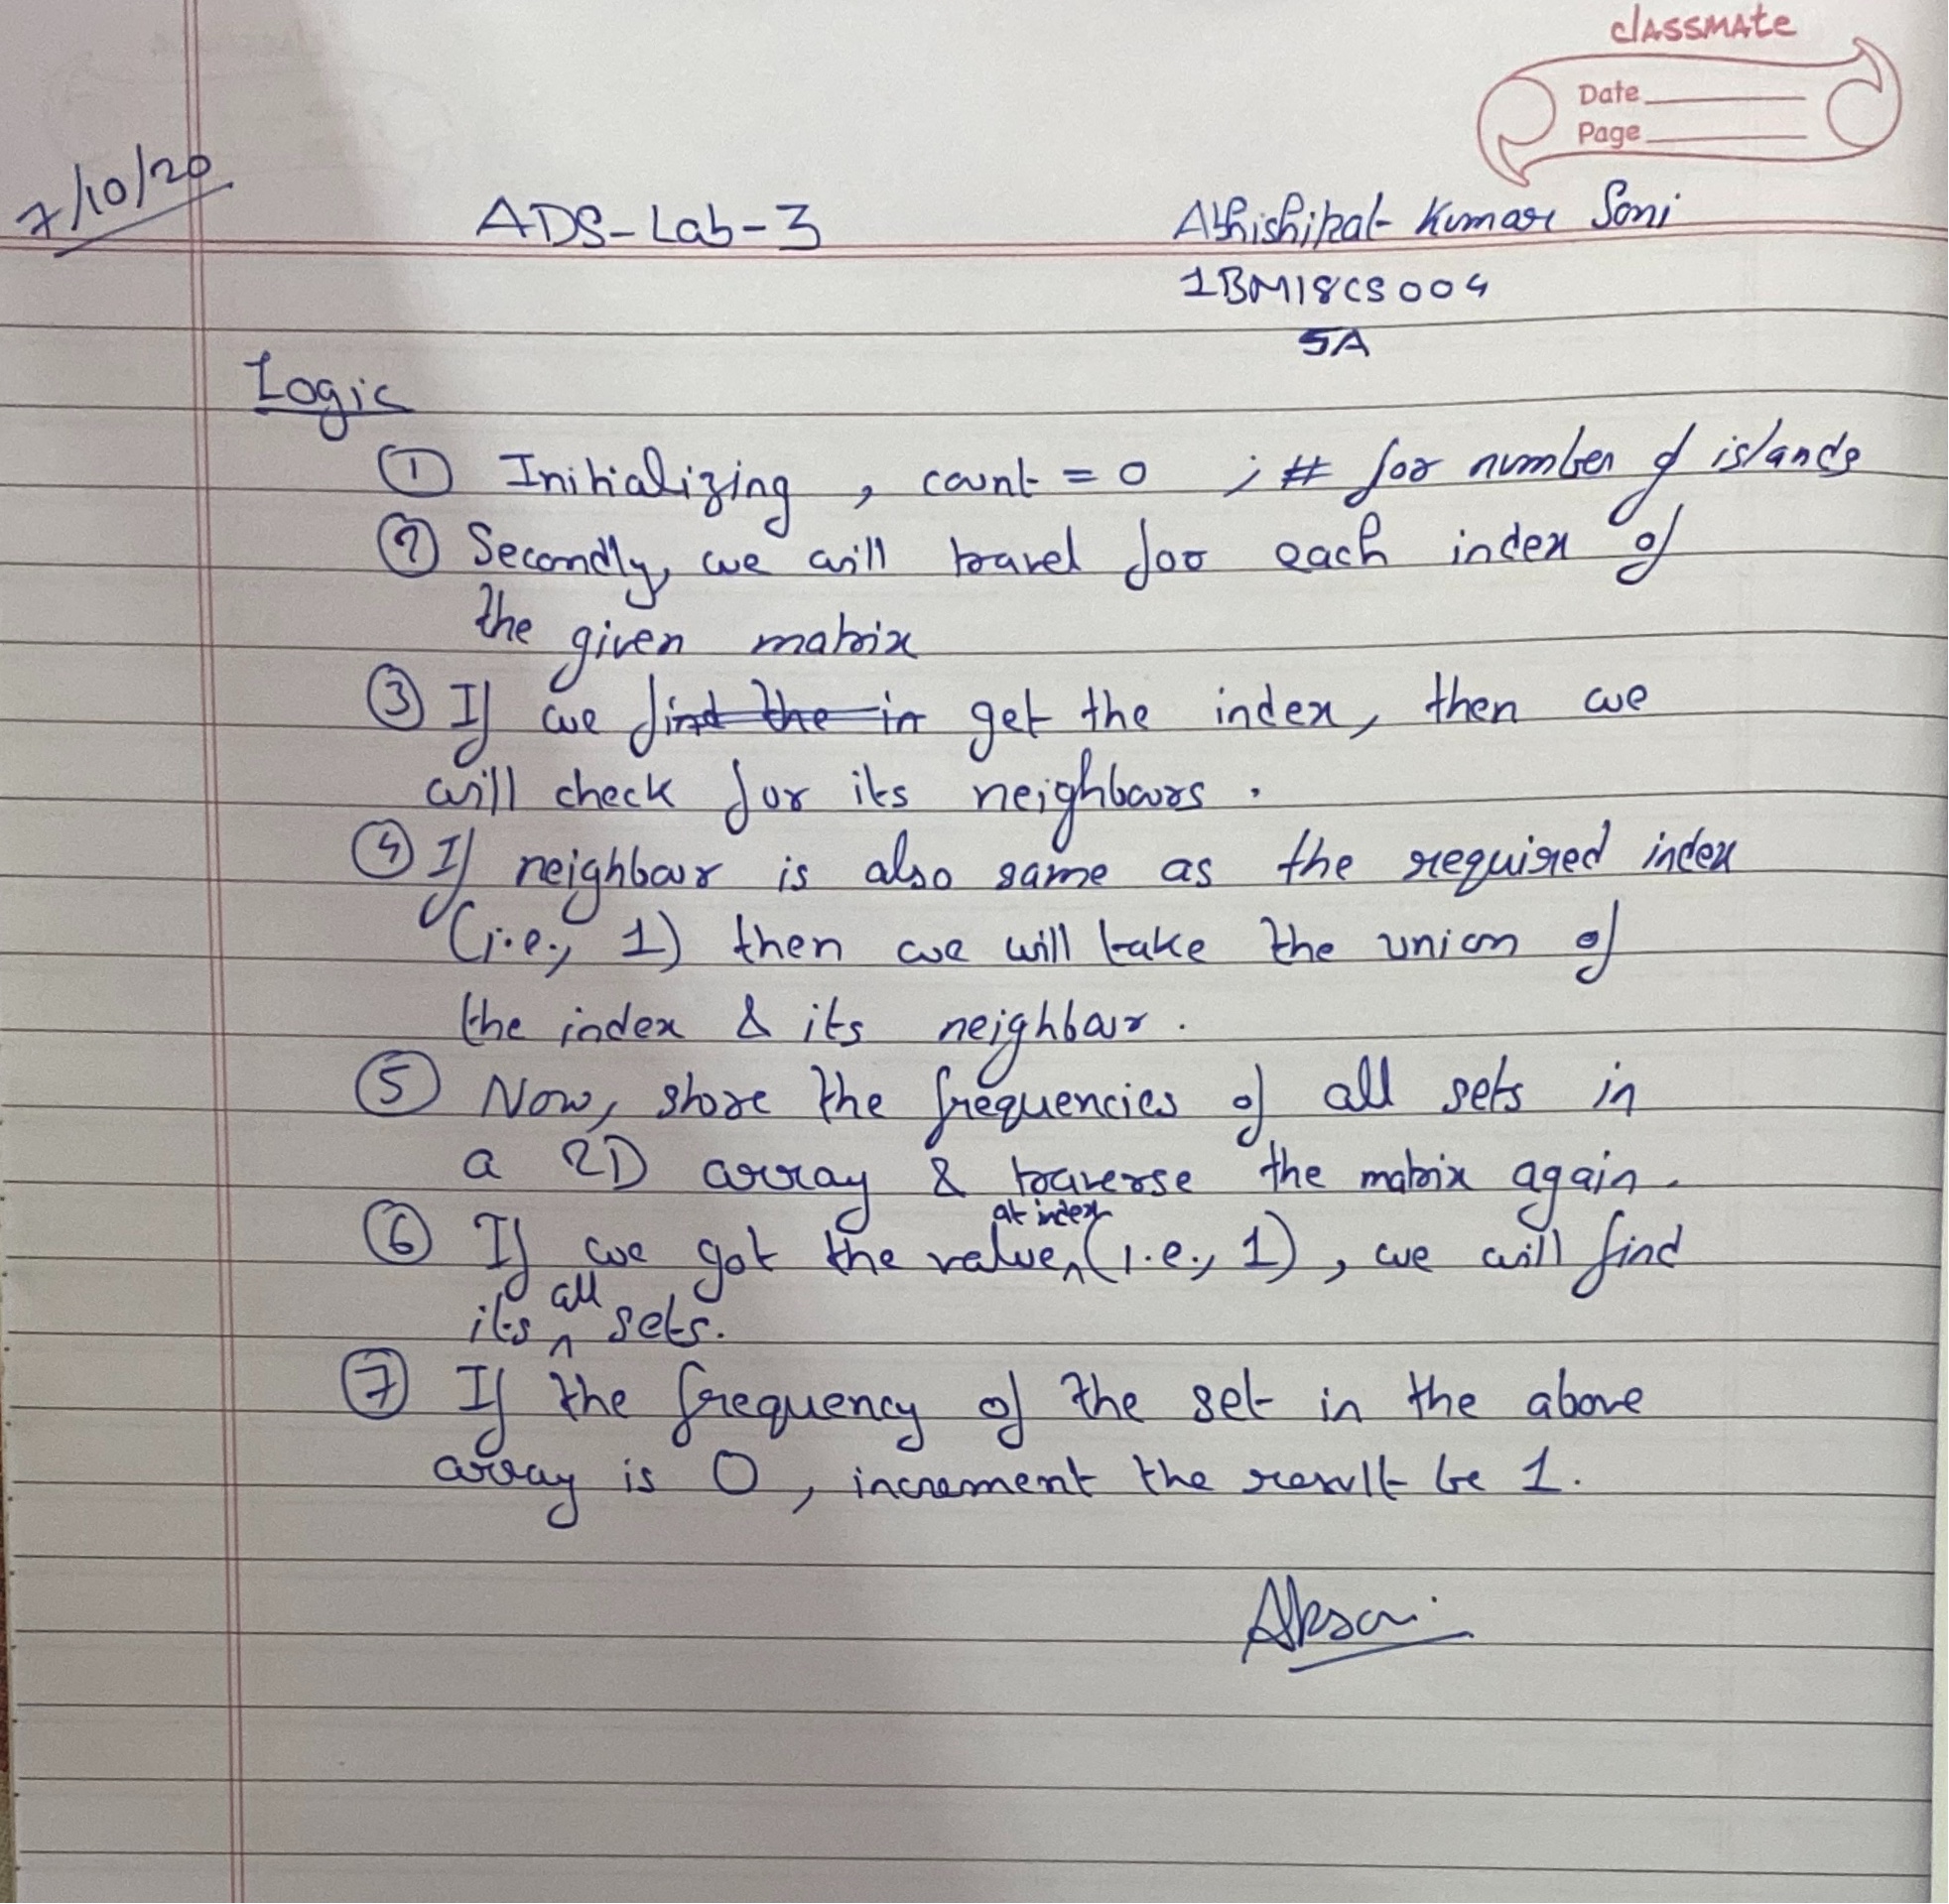 classmate
Date
Page
7/10/20
ADS-Lab-3
Kumar Soni
1BM18CS004
5A
Logic
① Initializing, count = 0 ; # for number of islands
② Secondly, we will travel for each index of
the given matrix
③ If we find the in get the index, then we
will check for its neighbours.
④ If neighbour is also same as the required index
(i.e., 1) then we will take the union of
the index & its neighbour.
⑤ Now, store the frequencies of all sets in
a 2D array & traverse the matrix again.
⑥ If we got the value at index (i.e., 1), we will find
its all sets.
⑦ If the frequency of the set in the above
array is 0, increment the result be 1.